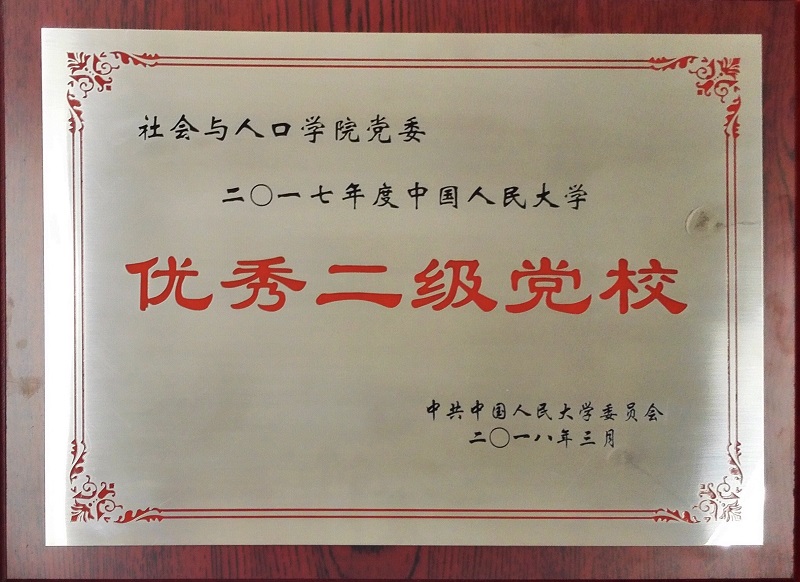 社会与人口学院党委
二〇一七年度中国人民大学
优秀二级党校
中共中国人民大学委员会
二〇一八年三月